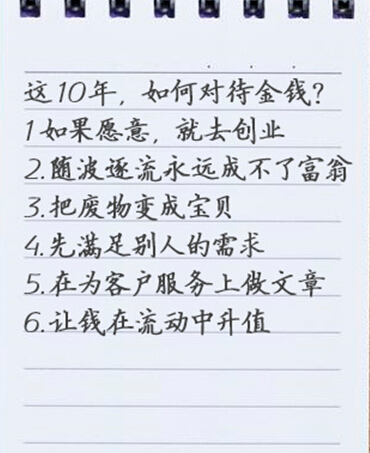 这10年，如何对待金钱？
1如果愿意，就去创业
2.随波逐流永远成不了富翁
3.把废物变成宝贝
4.先满足别人的需求
5.在为客户服务上做文章
6.让钱在流动中升值